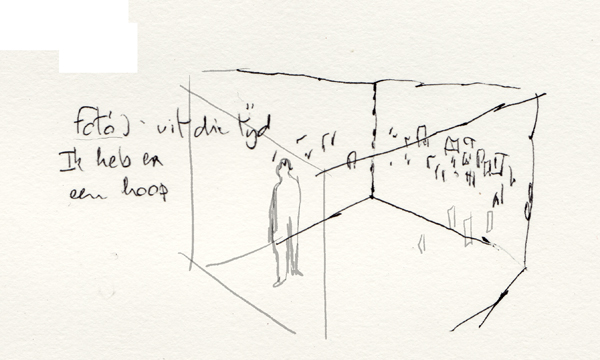 foto's uit die tÿd
Ik heb er
een hoop